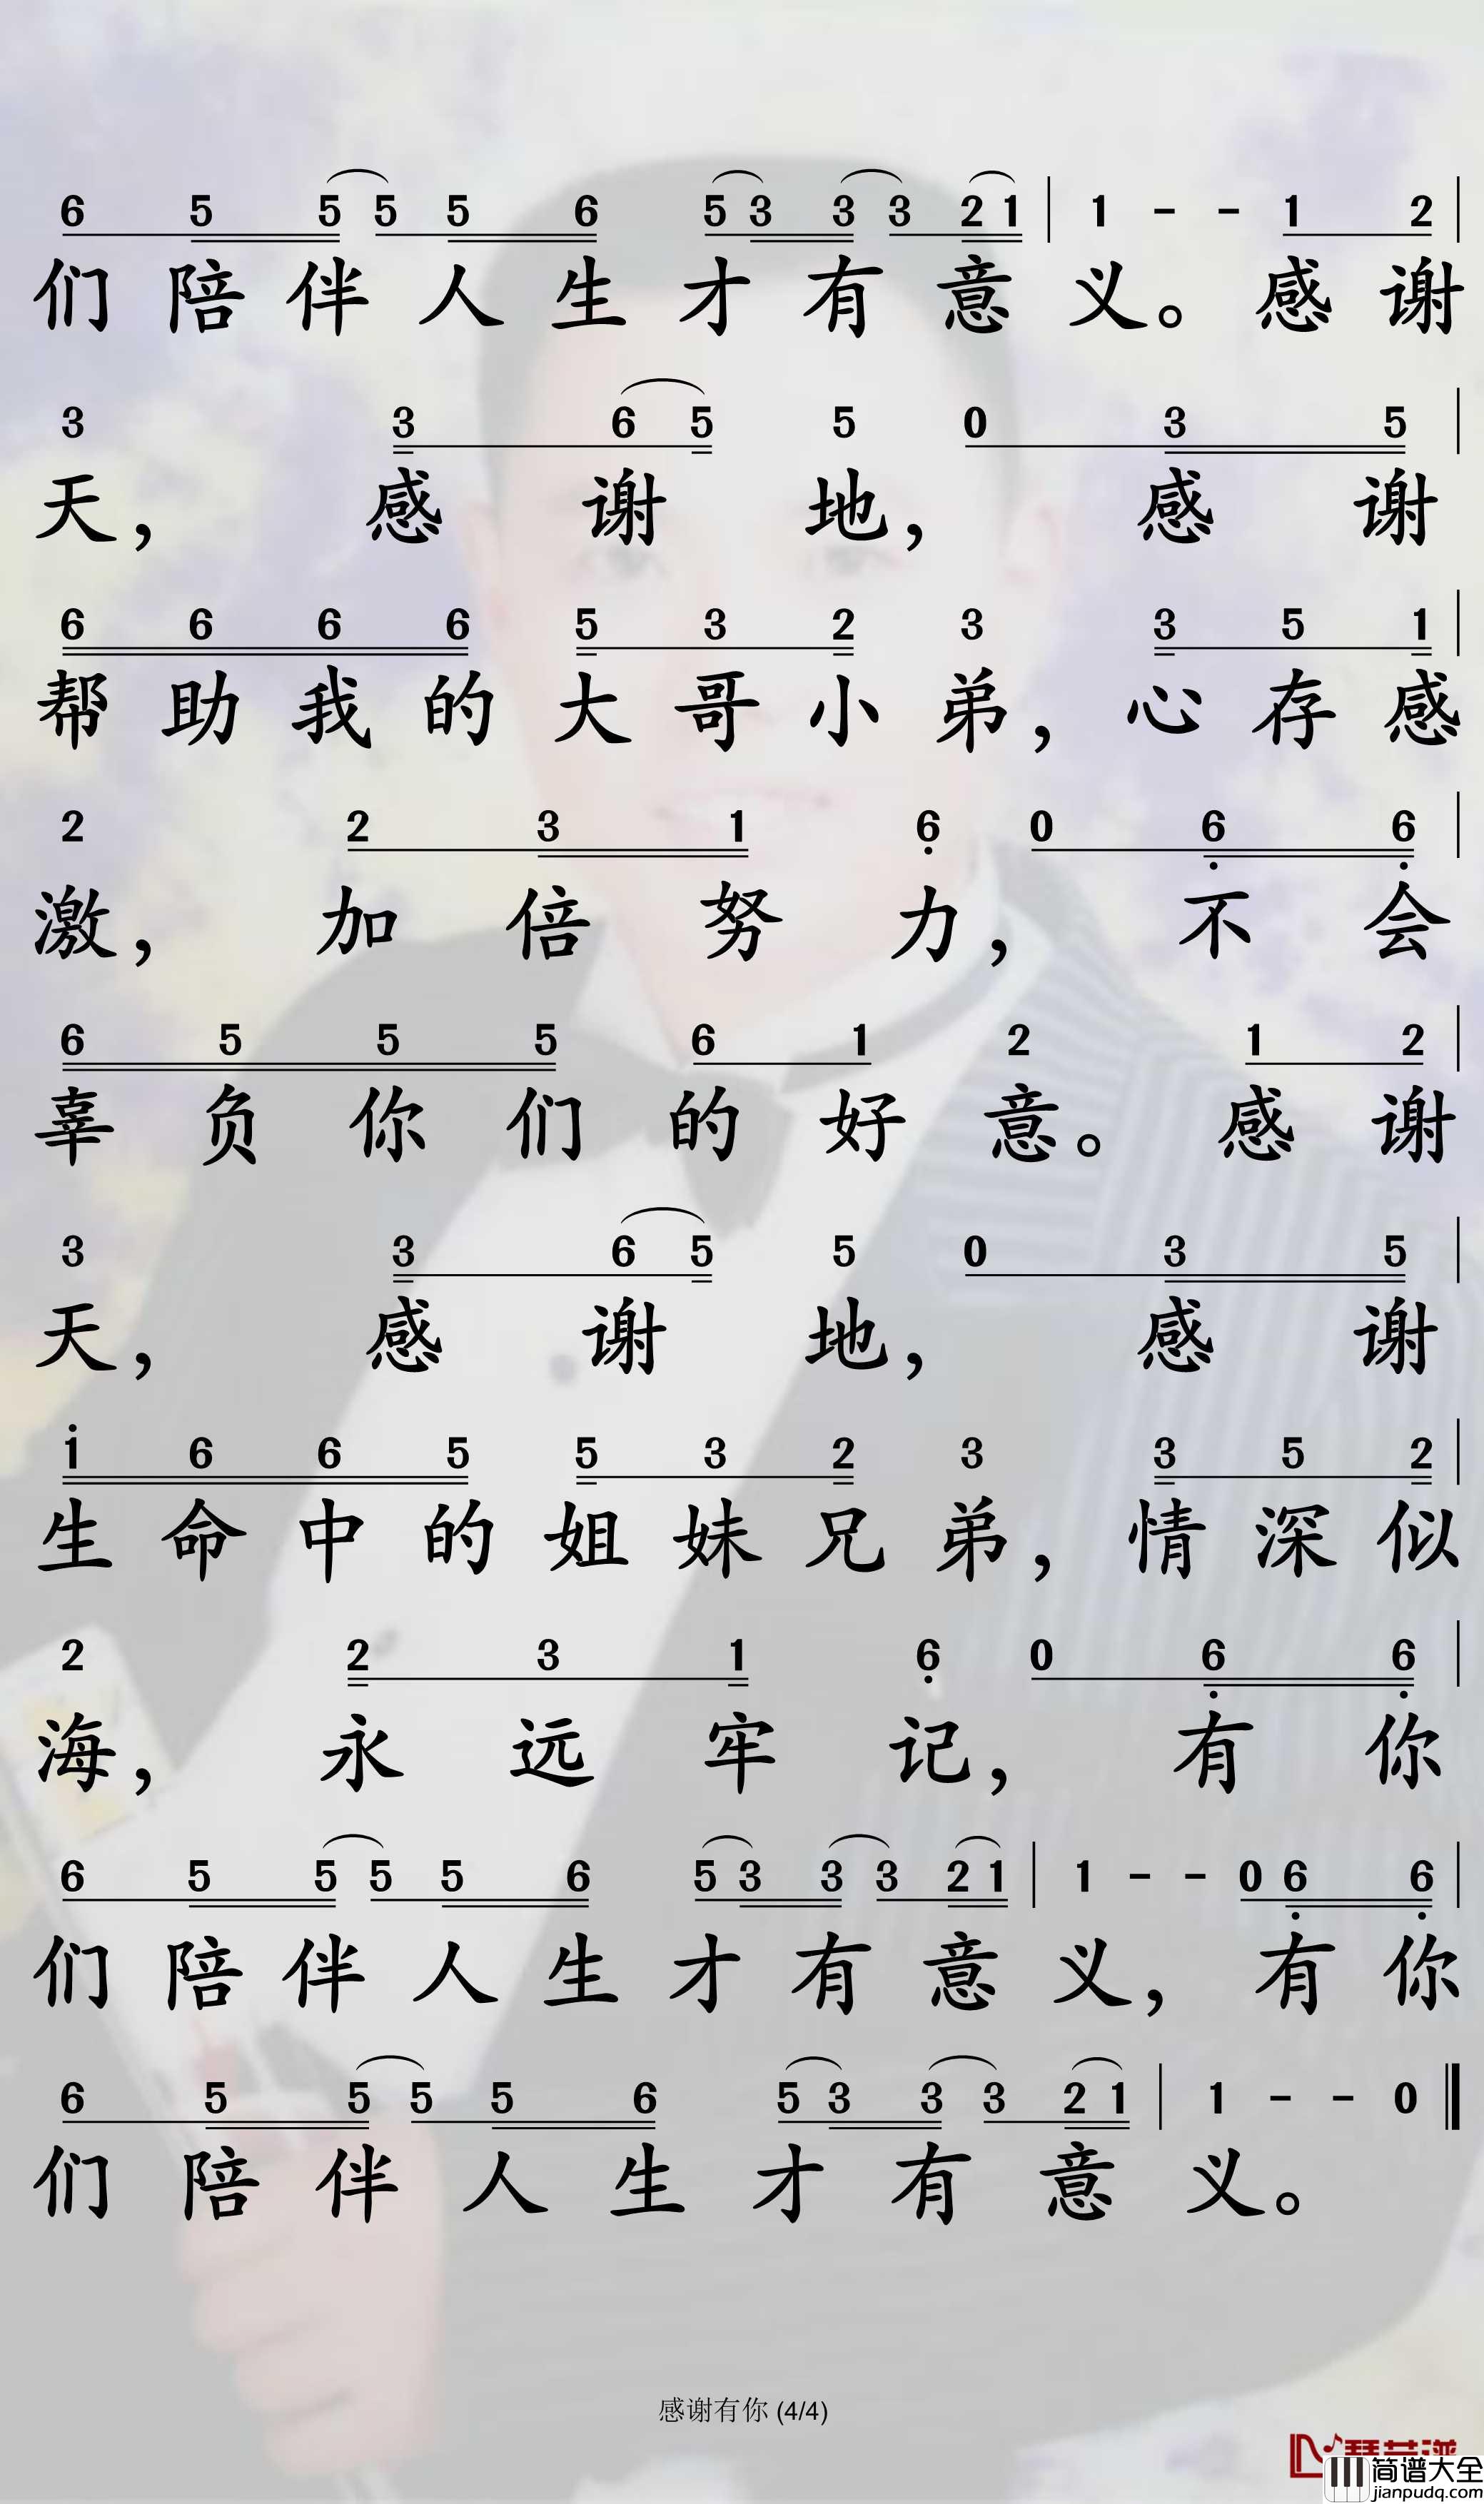 6 5 5 5 5 6 5 3 3 3 2 1 | 1 - - 1 2 |
们陪伴人生才有意义。感谢
3 3 6 5 5 0 3 5 |
天，感谢地，感谢
6 6 6 6 5 3 2 3 3 5 1 |
帮助我的大哥小弟，心存感
2 2 3 1 6̣ 0 6̣ 6̣ |
激，加倍努力，不会
6 5 5 5 6 1 2 1 2 |
辜负你们的好意。感谢
3 3 6 5 5 0 3 5 |
天，感谢地，感谢
1̇ 6 6 5 5 3 2 3 3 5 2 |
生命中的姐妹兄弟，情深似
2 2 3 1 6̣ 0 6̣ 6̣ |
海，永远牢记，有你
6 5 5 5 5 6 5 3 3 3 2 1 | 1 - - 0 6̣ 6̣ |
们陪伴人生才有意义，有你
6 5 5 5 5 6 5 3 3 3 2 1 | 1 - - 0 ‖
们陪伴人生才有意义。
感谢有你 (4/4)
简谱大全
jianpudq.com